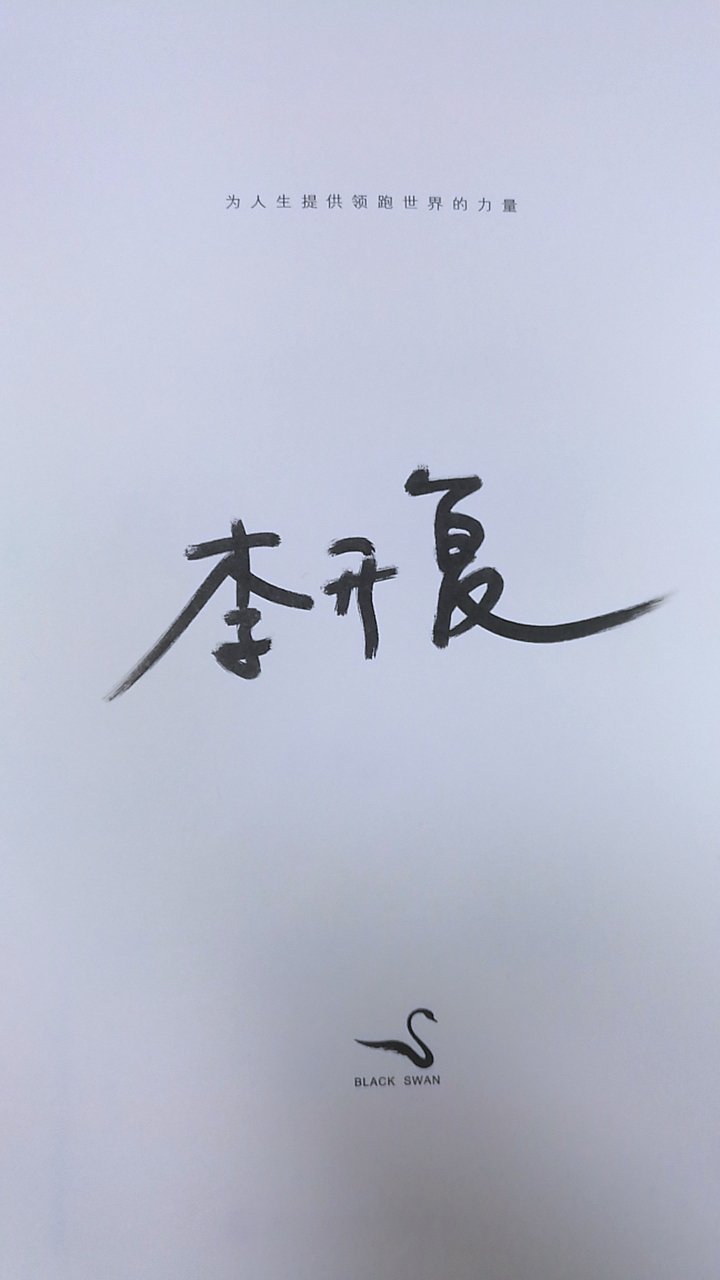 为人生提供领跑世界的力量
李开复
BLACK SWAN